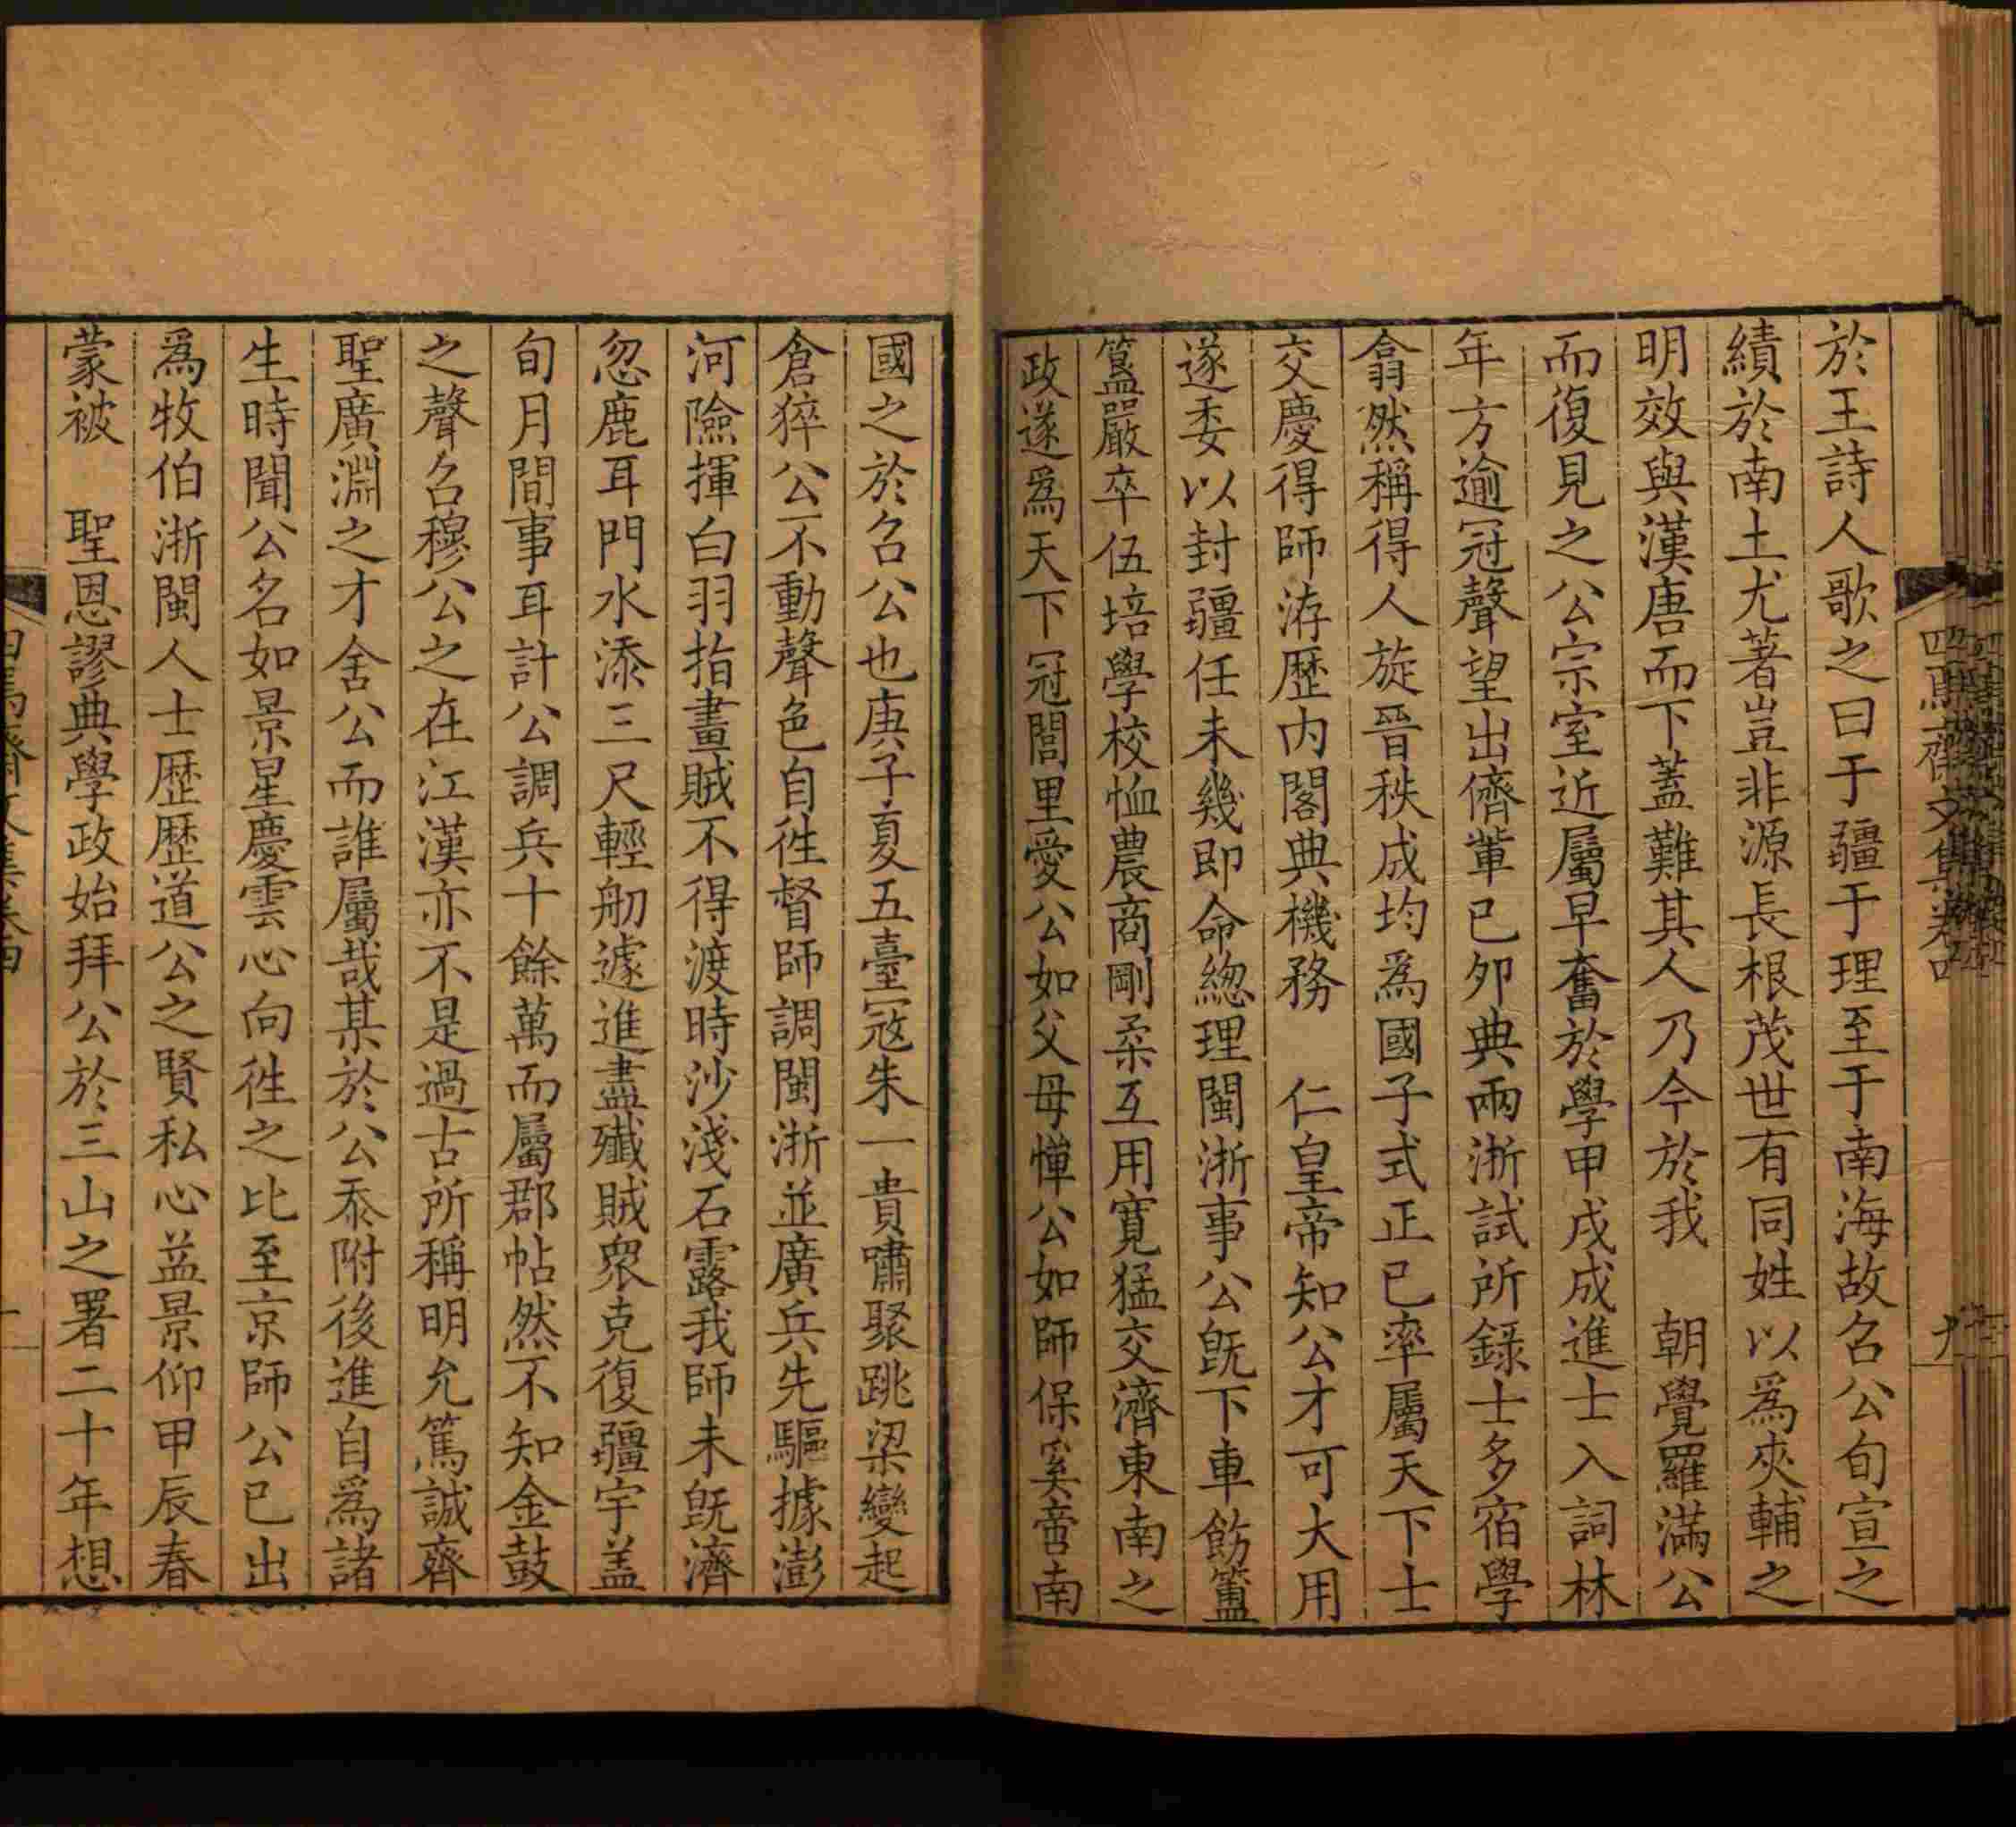 於王詩人歌之曰于疆于理至于南海故召公旬宣之
績於南土尤著豈非源長根茂世有同姓以爲夾輔之
明效與漢唐而下蓋難其人乃今於我　朝覺羅滿公
而復見之公宗室近屬早奮於學甲戌成進士入詞林
年方逾冠聲望出儕輩已夘典兩浙試所錄士多宿學
翕然稱得人旋晉秩成均為國子式正已率屬天下士
交慶得師洊歷内閣典機務　仁皇帝知公才可大用
遂委以封疆任未幾即命緫理閩浙事公既下車飭簠
簋嚴卒伍培學校恤農商剛柔互用寛猛交濟東南之
政遂爲天下冠閭里愛公如父母憚公如師保奚啻南
國之於召公也庚子夏五臺寇朱一貴嘯聚跳梁變起
倉猝公不動聲色自徃督師調閩浙並廣兵先驅據澎
河險揮白羽指畫賊不得渡時沙淺石露我師未旣濟
忽鹿耳門水添三尺輕舠遽進盡殲賊衆克復疆宇盖
旬月間事耳計公調兵十餘萬而屬郡帖然不知金鼓
之聲召穆公之在江漢亦不是過古所稱明允篤誠齊
聖廣淵之才舍公而誰屬哉某於公忝附後進自爲諸
生時聞公名如景星慶雲心向徃之比至京師公已出
爲牧伯浙閩人士歴歴道公之賢私心益景仰甲辰春
蒙被　聖恩謬典學政始拜公於三山之署二十年想